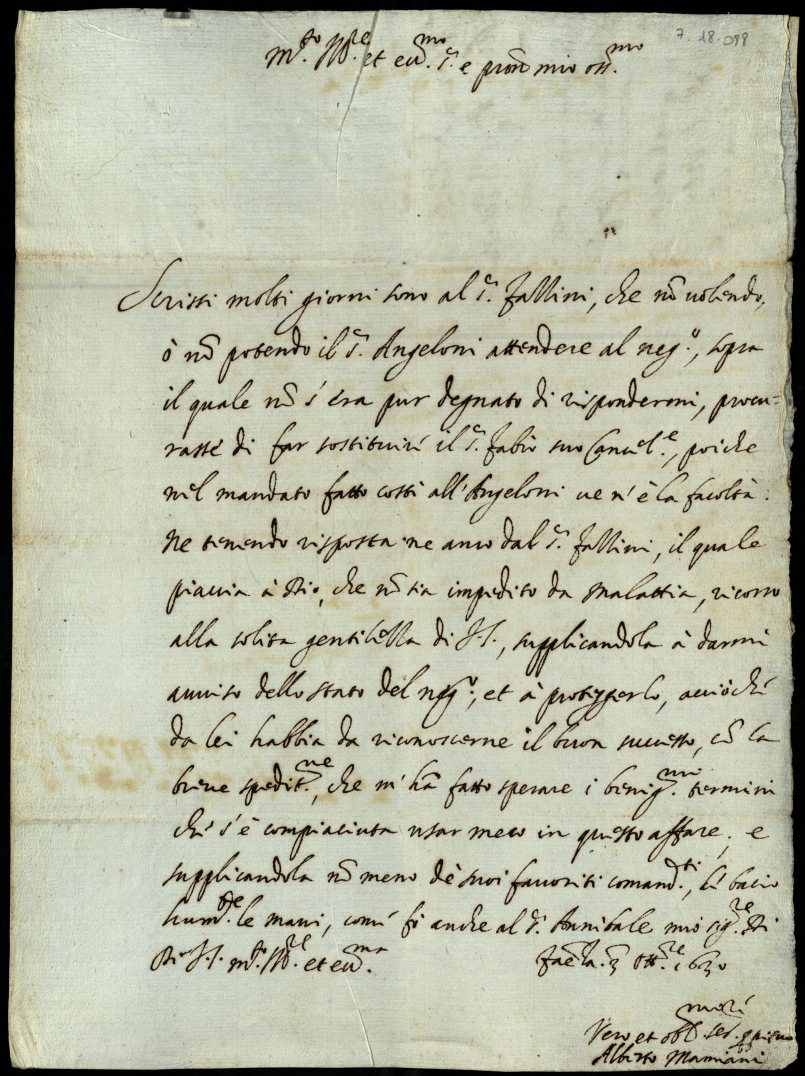 7.18.098
m.to Ill.re et ecc.mo S.r e pron mio oss.mo
Scrissi molti giorni sono al S.r Fallini, che nõ uolendo,
ò nõ potendo il S.r Angeloni attendere al neg.o, sopra
il quale nõ s'era pur degnato di rispondermi, procu=
rasse di far sostituire il S.r Fabio suo Canc.e, poiche
nel mandato fatto costì all'Angeloni ue n'è la facoltà.
Ne tenendo risposta ne anco dal S.r Fallini, il quale
piaccia à Dio, che nõ sia impedito da malattia, ricorro
alla solita gentilezza di V.S., supplicandola à darmi
auuiso dello stato del neg.o, et à proteggerlo, acciòche
da lei habbia da riconoscerne il buon successo, cõ la
breue spedit.ne, che m'hã fatto sperare i benig.mi termini
che s'è compiaciuta usar meco in questo affare; e
supplicandola nõ meno de suoi fauoriti comand.ti, le bacio
hum.te le mani, come fò anche al S.r Annibale mio sig.re Di
Di V.S. m.to Ill.re et ecc.ma Faenza. 3 Ott.re 1630
Vero et obl. ser.
Alberto Mamiani